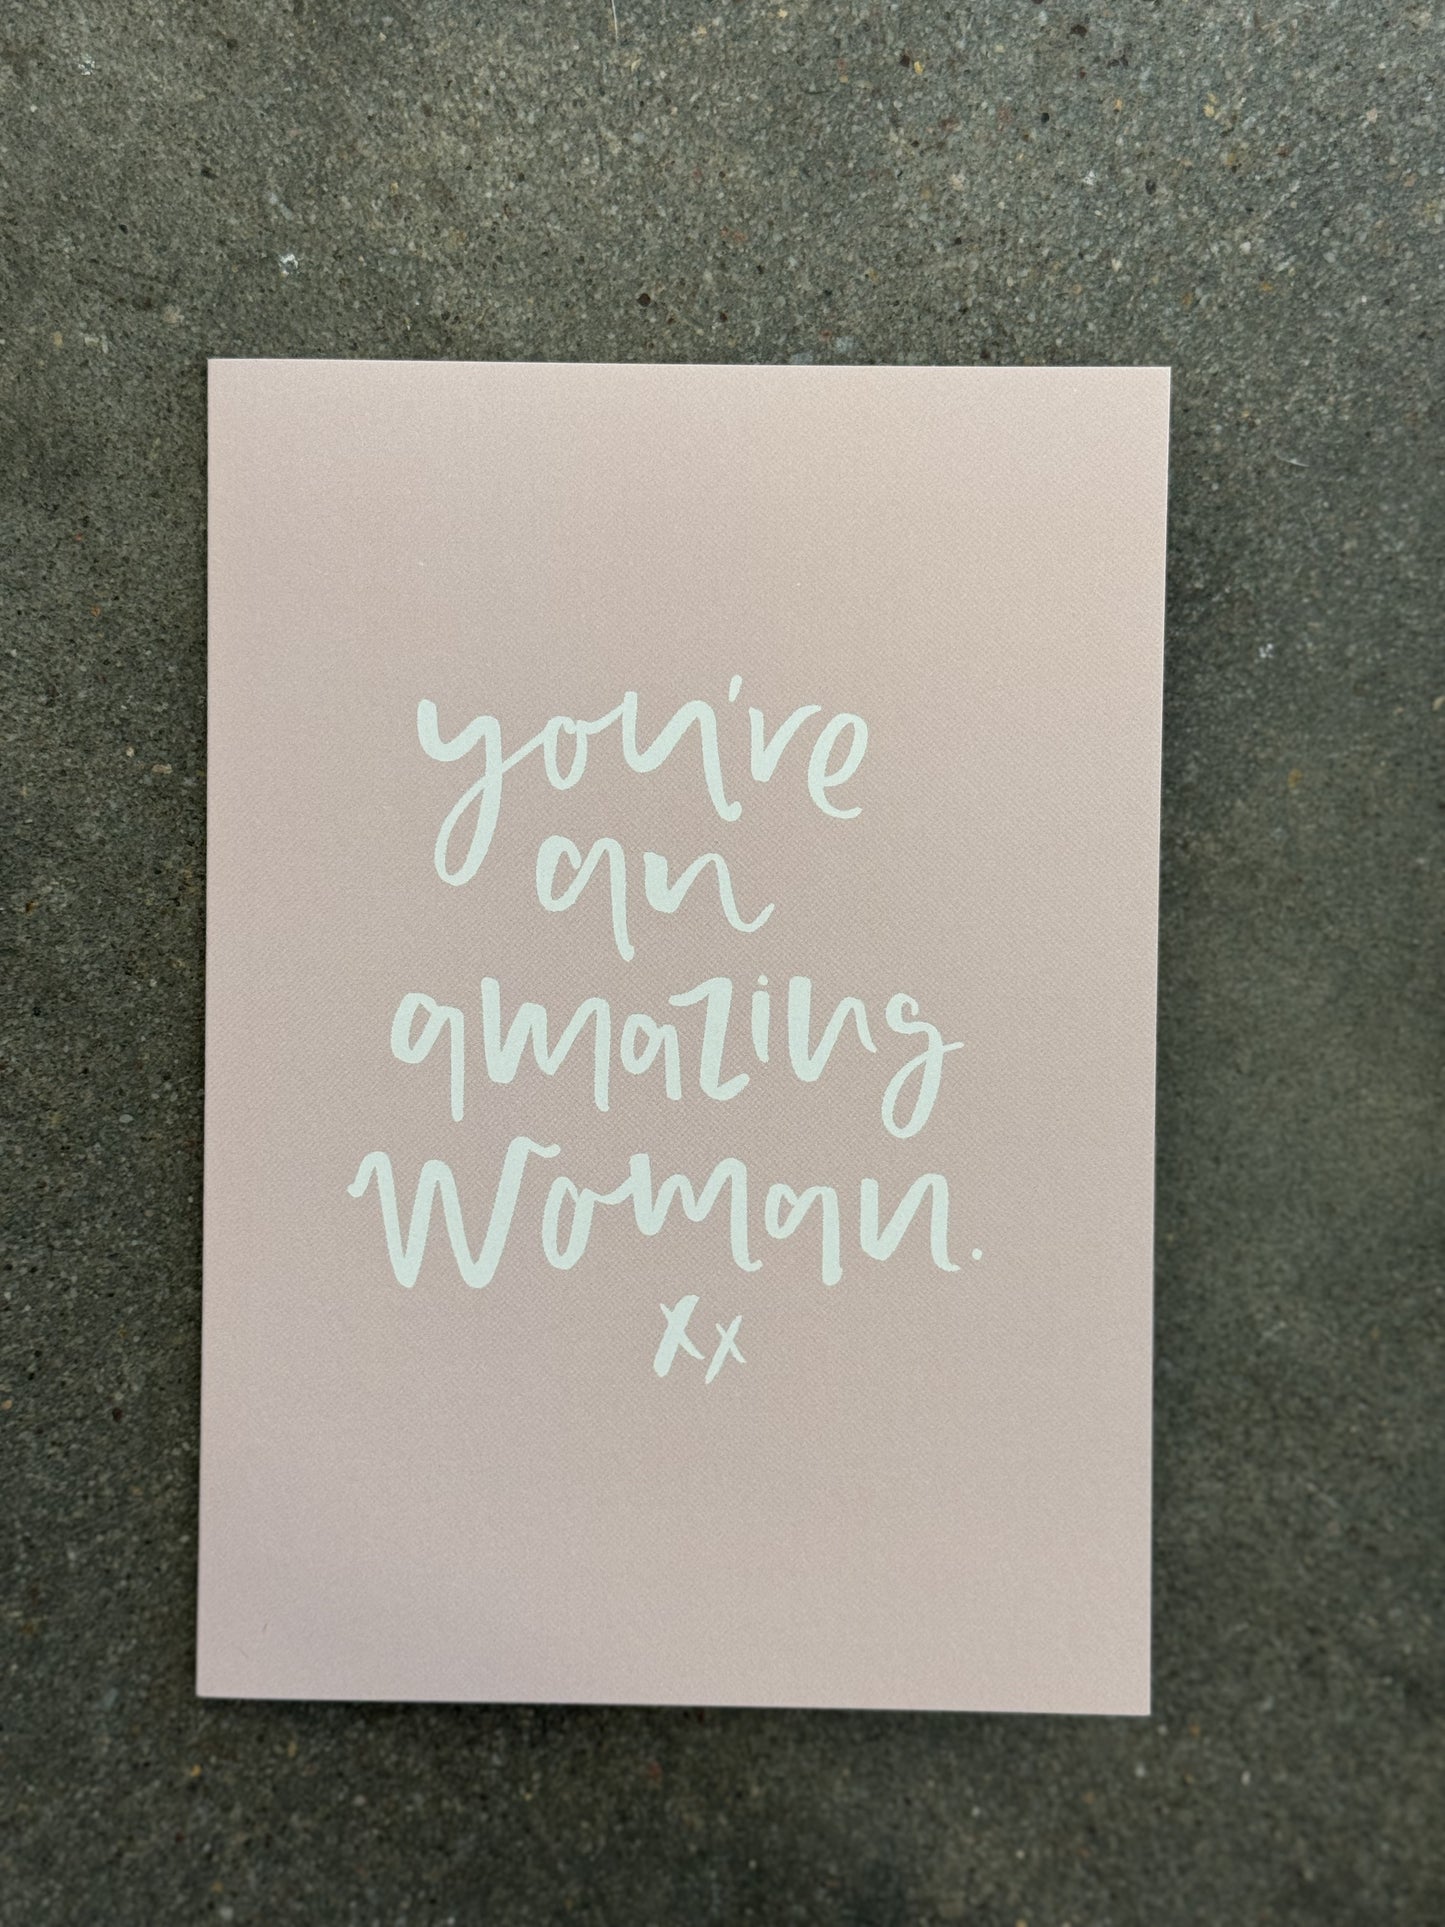 you're
an
amazing
Woman.
xx